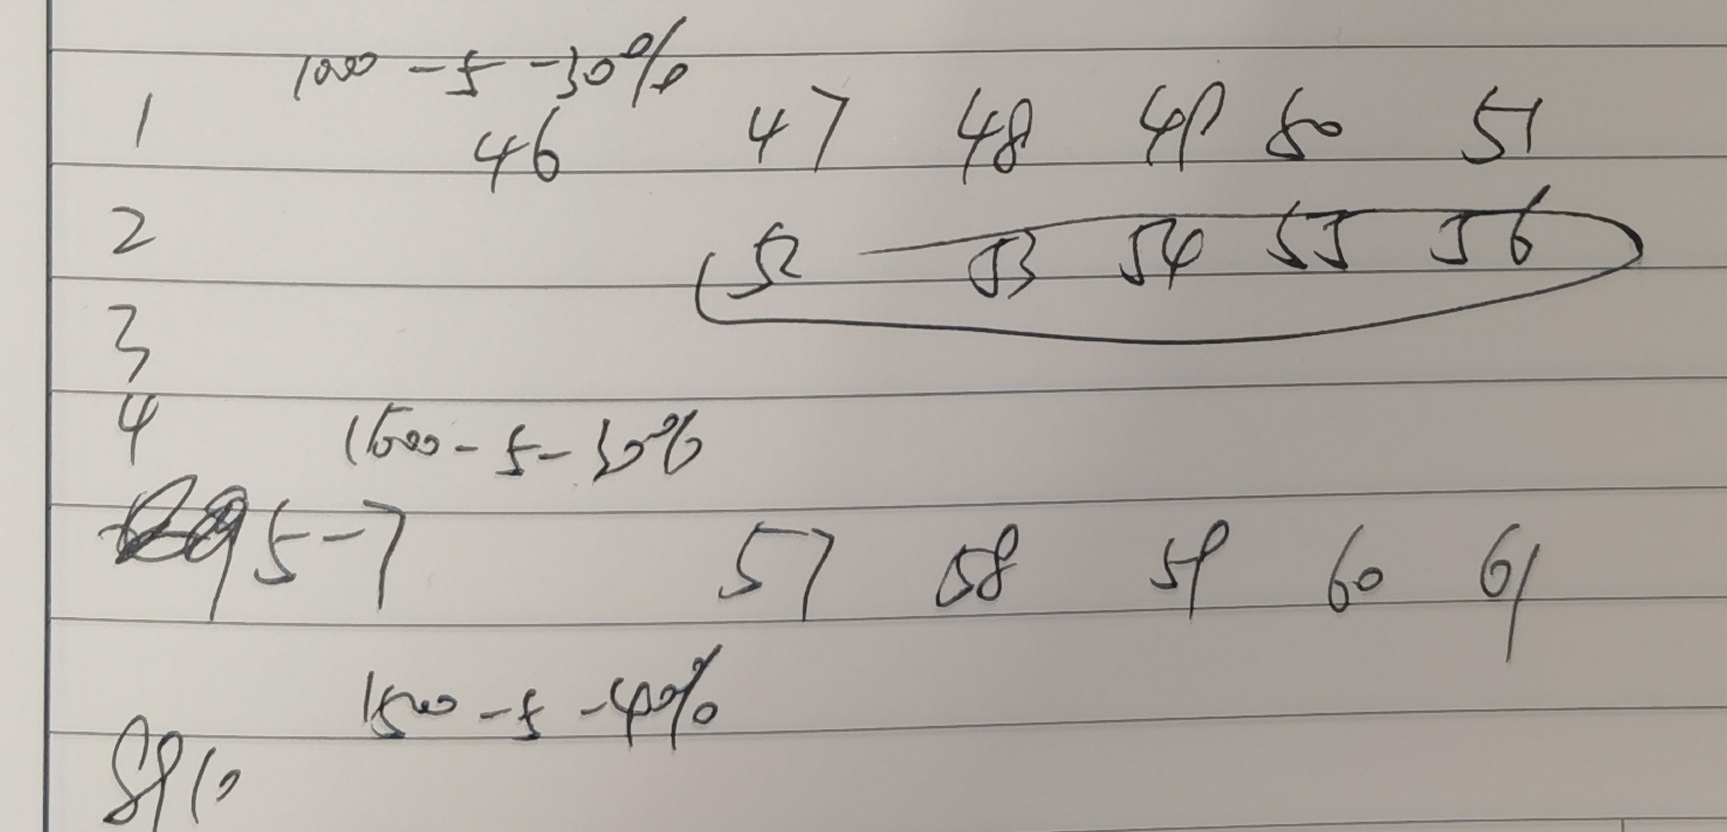 1000 - 5 - 30%
1 46 47 48 49 50 51
2 52 53 54 55 56
3
4 1500 - 5 - 30%
5-7 57 58 59 60 61
1500 - 5 - 40%
8 9 10